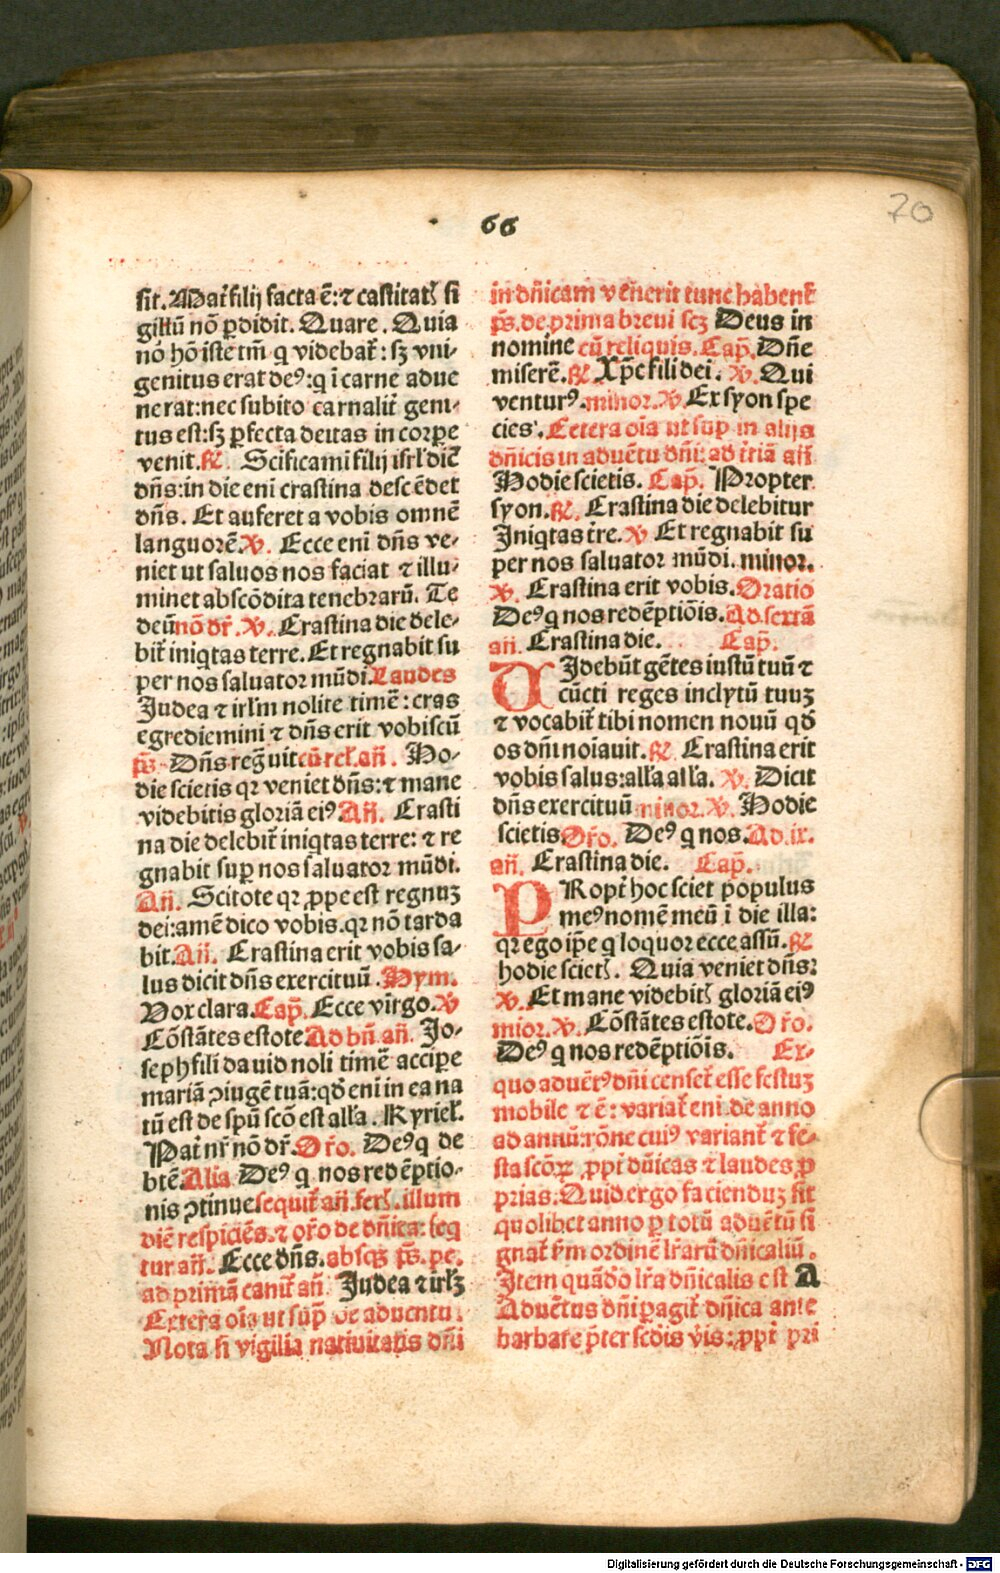 66
70
sit. Mat̃ filij facta ē: ⁊ castitatꝭ si
gillũ nõ ꝑdidit. Quare. Quia
nõ hõ iste tm̃ q̃ videbat̃: sꝫ vni-
genitus erat deꝰ: q̃ ĩ carne adue
nerat: nec subito carnalit̃ geni-
tus est: sꝫ ꝑfecta deitas in corꝑe
venit. ℟. Scificamĩ filij isrl̃ dic̃
dñs: in die eni crastina descẽdet
dñs. Et auferet a vobis omnẽ
languorẽ. ℣. Ecce eni dñs ve-
niet ut saluos nos faciat ⁊ illu-
minet abscõdita tenebrarũ. Te
deũ nõ dr̃. ℣. Crastina die dele-
bit̃ iniqtas terre. Et regnabit su
per nos saluator mũdi. Laudes
Judea ⁊ irlm̃ nolite timẽ: cras
egrediemini ⁊ dñs erit vobiscũ
ps̃. Dñs reg̃uit cũ rel̃. añ. Ho-
die scietis qꝛ veniet dñs: ⁊ mane
videbitis gloriã eiꝰ Añ. Crasti
na die delebit̃ iniqtas terre: ⁊ re
gnabit suꝑ nos saluator mũdi.
Añ. Scitote qꝛ ꝓpe est regnuꝫ
dei: amẽ dico vobis. qꝛ nõ tarda
bit. Añ. Crastina erit vobis sa-
lus dicit dñs exercituũ. Hym.
Vox clara. Cap̃. Ecce vĩrgo. ℣
Cõstãtes estote. Ad bñ añ. Jo-
seph fili dauid noli timẽ accipe
mariã ꝯiugẽ tuã: qd̃ eni in ea na
tũ est de spũ scõ est alla. Kyriel̃.
Pat̃ nr̃ nõ dr̃. Or̃o. Deꝰ q̃ de
btẽ. Alia Deꝰ q̃ nos redẽptio-
nis ꝯtinue sequit̃ añ. ferꝭ. illum
diẽ respiciẽs. ⁊ or̃o de dñica: seq
tur añ. Ecce dñs. absqꝫ ps̃. pe.
ad primã canit̃ añ. Judea ⁊ irlꝫ
Cetera oĩa ut suꝑ de aduentu.
Nota si vigilia natiuitatis dñi
in dñicam vẽnerit tunc habent̃
ps̃. de prima breui scꝫ Deus in
nomine cũ reliquis. Cap̃. Dñe
miserẽ. ℟ Xp̃e fili dei. ℣. Qui
venturꝰ. minor. ℣. Ex syon spe
cies. Cetera oĩa ut suꝑ in alijs
dñicis in aduẽtu dñi: ad tr̃iã añ
Hodie scietis. Cap̃. Propter
syon. ℟. Crastina die delebitur
Jniqtas tr̃e. ℣ Et regnabit su
per nos saluator mũdi. minor.
℣. Crastina erit vobis. Oratio
Deꝰ q̃ nos redẽptiõis. Ad sextã
añ. Crastina die. Cap̃.
VJdebũt gẽtes iustũ tuũ ⁊
cũcti reges inclytũ tuuꝫ
⁊ vocabit̃ tibi nomen nouũ qd̃
os dñi noĩauit. ℟ Crastina erit
vobis salus: alla alla. ℣. Dicit
dñs exercituũ minor. ℣. Hodie
scietis Or̃o. Deꝰ q̃ nos. Ad ix.
añ. Crastina die. Cap̃.
PRopt̃ hoc sciet populus
meꝰ nomẽ meũ ĩ die illa:
qꝛ ego ip̃e q̃ loquor ecce assũ. ℟
hodie scietꝭ. Quia veniet dñs:
℣. Et mane videbitꝭ gloriã eiꝰ
mior. ℣. Cõstãtes estote. Or̃o.
Deꝰ q̃ nos redẽptiõis. Ex-
quo aduẽtꝰ dñi censet̃ esse festuꝫ
mobile ⁊ ẽ: variat̃ eni de anno
ad annũ: rõne cuiꝰ variant̃ ⁊ fe-
sta scõꝝ ꝓpt̃ dñicas ⁊ laudes ꝓ
prias. Quid ergo faciendũ sit
quolibet anno ꝑ totũ aduẽtũ si
gnat̃ ẽm ordinẽ lr̃arũ dñicaliũ.
Jtem quãdo lr̃a dñicalis est A
Aduẽtus dñi ꝑagit̃ dñica ante
barbare p̃ter sedĩs vr̃is: ꝓpt̃ pri
Digitalisierung gefördert durch die Deutsche Forschungsgemeinschaft - DFG